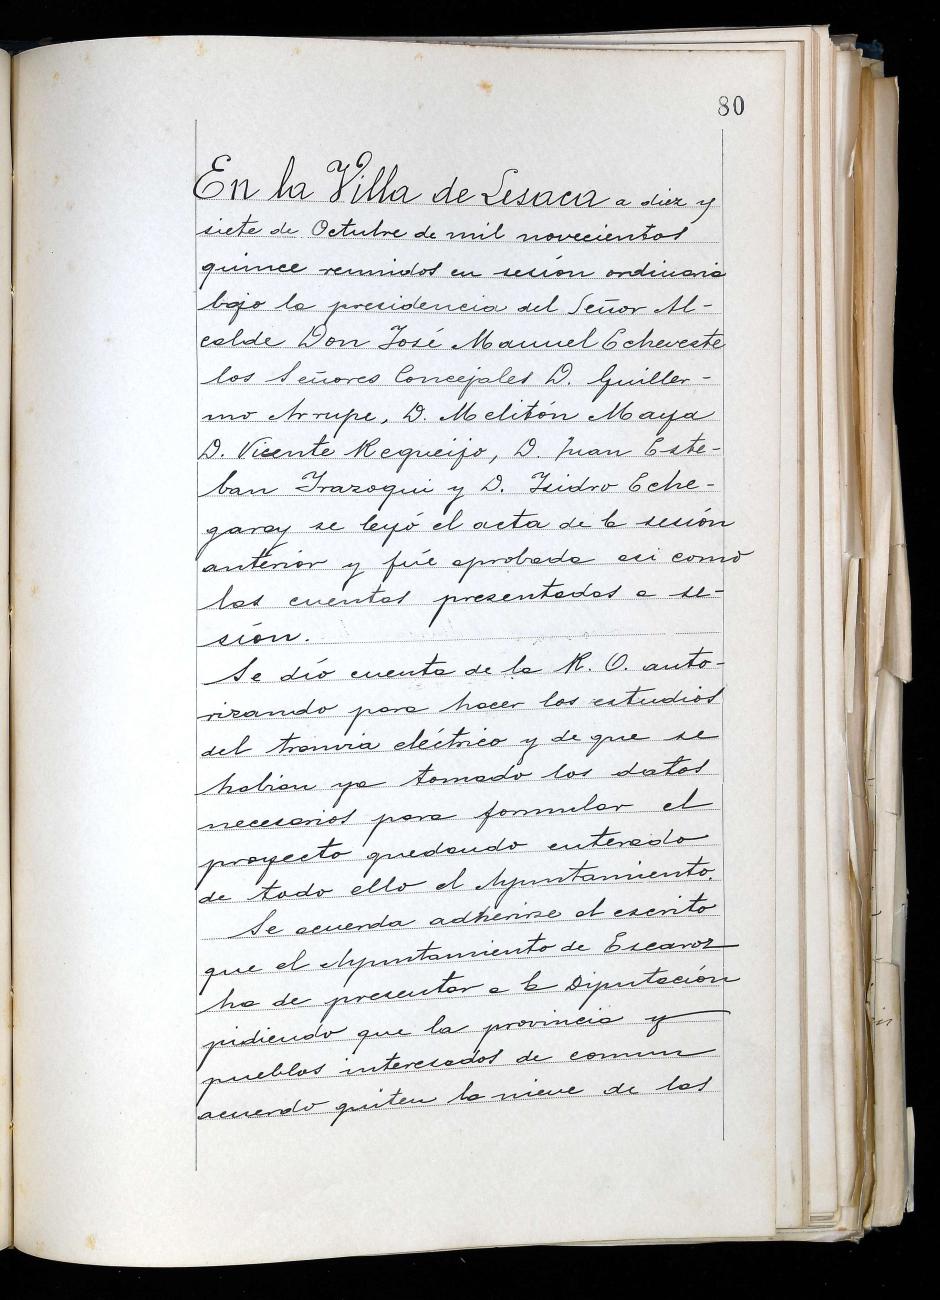 80
En la Villa de Lesaca a diez y
siete de Octubre de mil novecientos
quince reunidos en sesión ordinaria
bajo la presidencia del Señor Al-
calde Don José Manuel Echeveste
los Señores Concejales D. Guiller-
mo Arrupe, D. Melitón Maya
D. Vicente Requeijo, D. Juan Este-
ban Irazoqui y D. Isidro Eche-
garay se leyó el acta de la sesión
anterior y fué aprobada asi como
las cuentas presentadas a se-
sión.
Se dió cuenta de la R. O. auto-
rizando para hacer los estudios
del tranvia eléctrico y de que se
habian ya tomado los datos
necesarios para formular el
proyecto quedando enterado
de todo ello el Ayuntamiento.
Se acuerda adherirse al escrito
que el Ayuntamiento de Escaroz
ha de presentar a la Diputación
pidiendo que la provincia y
pueblos interesados de comun
acuerdo quiten la nieve de las